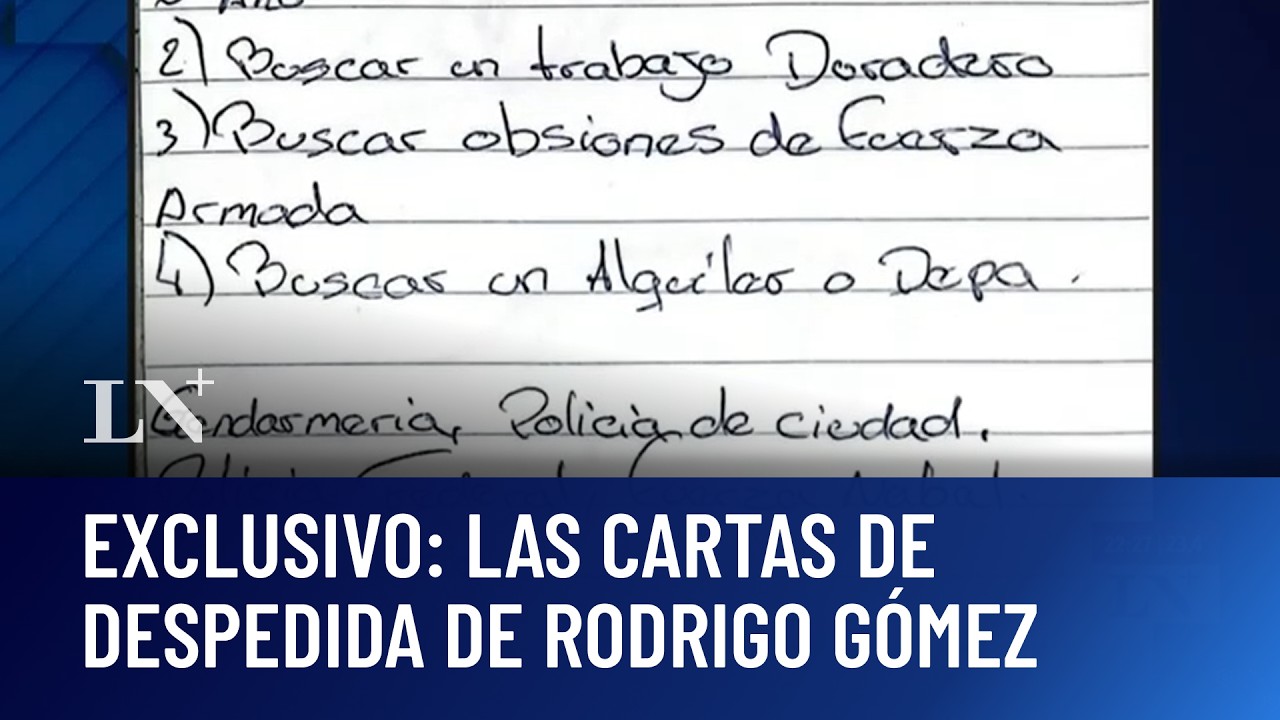 2) Boscar un trabajo Doradero
3) Buscar obsiones de fuerza
Armada
4) Buscar un Alquilar o Depa.
LN+
Gendarmeria, Policia de ciudad.
EXCLUSIVO: LAS CARTAS DE
DESPEDIDA DE RODRIGO GÓMEZ